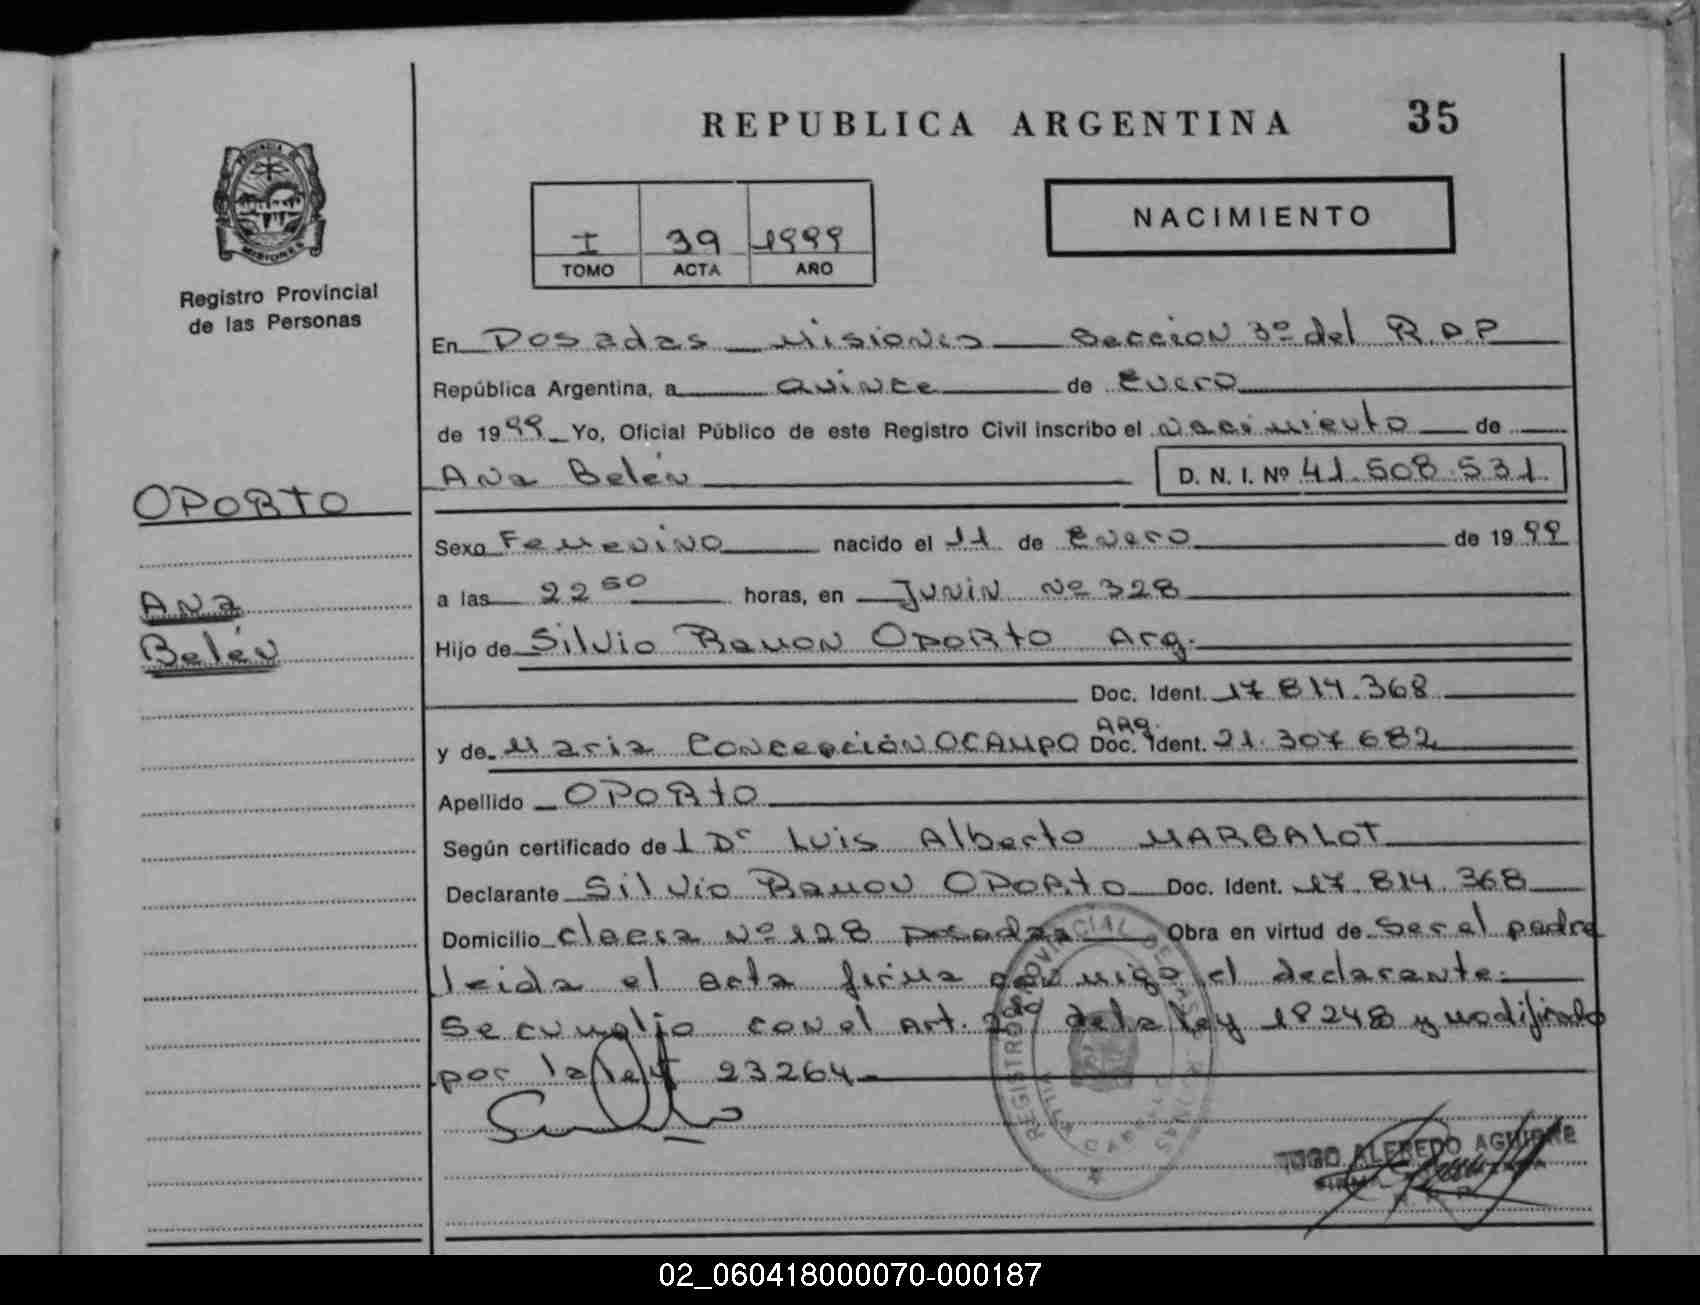 REPUBLICA ARGENTINA 35
PROVINCIA DE MISIONES
Registro Provincial
de las Personas
I 39 1999
TOMO ACTA AÑO
NACIMIENTO
En Posadas Misiones Seccion 3º del R.P.P
República Argentina, a Quince de Enero
de 1999 Yo, Oficial Público de este Registro Civil inscribo el nacimiento de
Ana Belén D. N. I. Nº 41.508.531
OPORTO
Ana
Belén
Sexo Femenino nacido el 11 de Enero de 1999
a las 22 50 horas, en Junin Nº 328
Hijo de Silvio Ramon OPORTO Arg.
Doc. Ident. 17.814.368
y de Maria Concepción OCAMPO ARG. Doc. Ident. 21.307.682
Apellido OPORTO
Según certificado de l Dr Luis Alberto MARGALOT
Declarante Silvio Ramon OPORTO Doc. Ident. 17.814.368
Domicilio Nº 128 Posadas Obra en virtud de Ser el padre
leida el acta firma conmigo el declarante.
Se cumplio con el Art. 2do de la ley 18248 y modificado
por la ley 23264
REGISTRO PROVINCIAL DE LAS PERSONAS
ALFREDO AGUIRRE
02_060418000070-000187